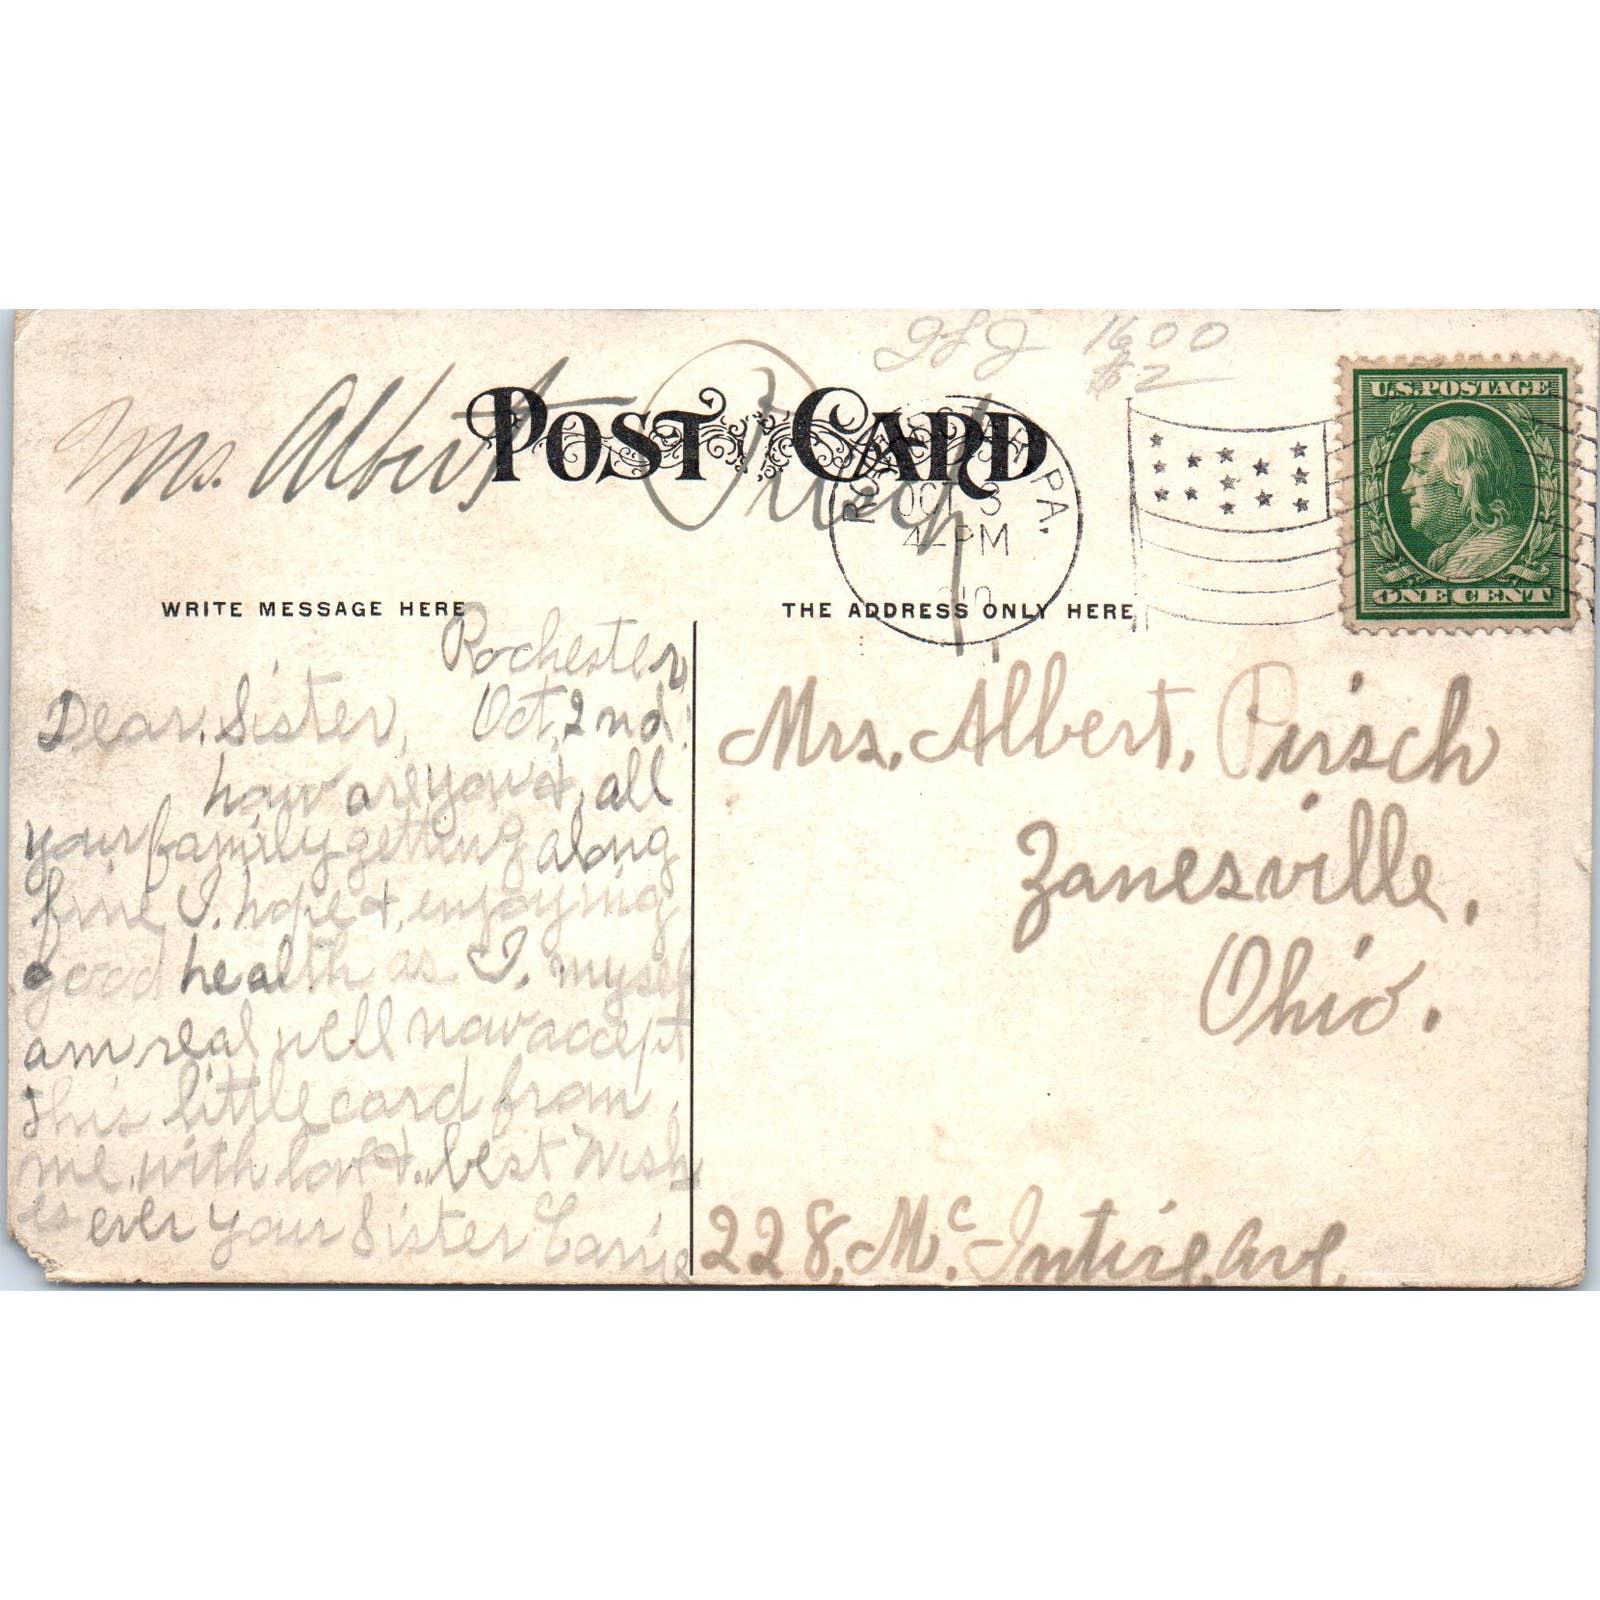 GLJ 1600
$2
Mrs. Albert Pirsch
POST CARD
ROCHESTER, PA.
OCT 3
4-PM
U.S. POSTAGE
ONE CENT
WRITE MESSAGE HERE
THE ADDRESS ONLY HERE
Rochester
Oct, 2nd
Dear, Sister,
how are you &, all
your family getting along
fine I. hope &, enjoying
good health as I. myself
am real well now accept
this little card from
me, with love &., best Wish
es ever your Sister Carrie
Mrs. Albert, Pirsch
Zanesville,
Ohio.
228, Mc. Intire, Ave,